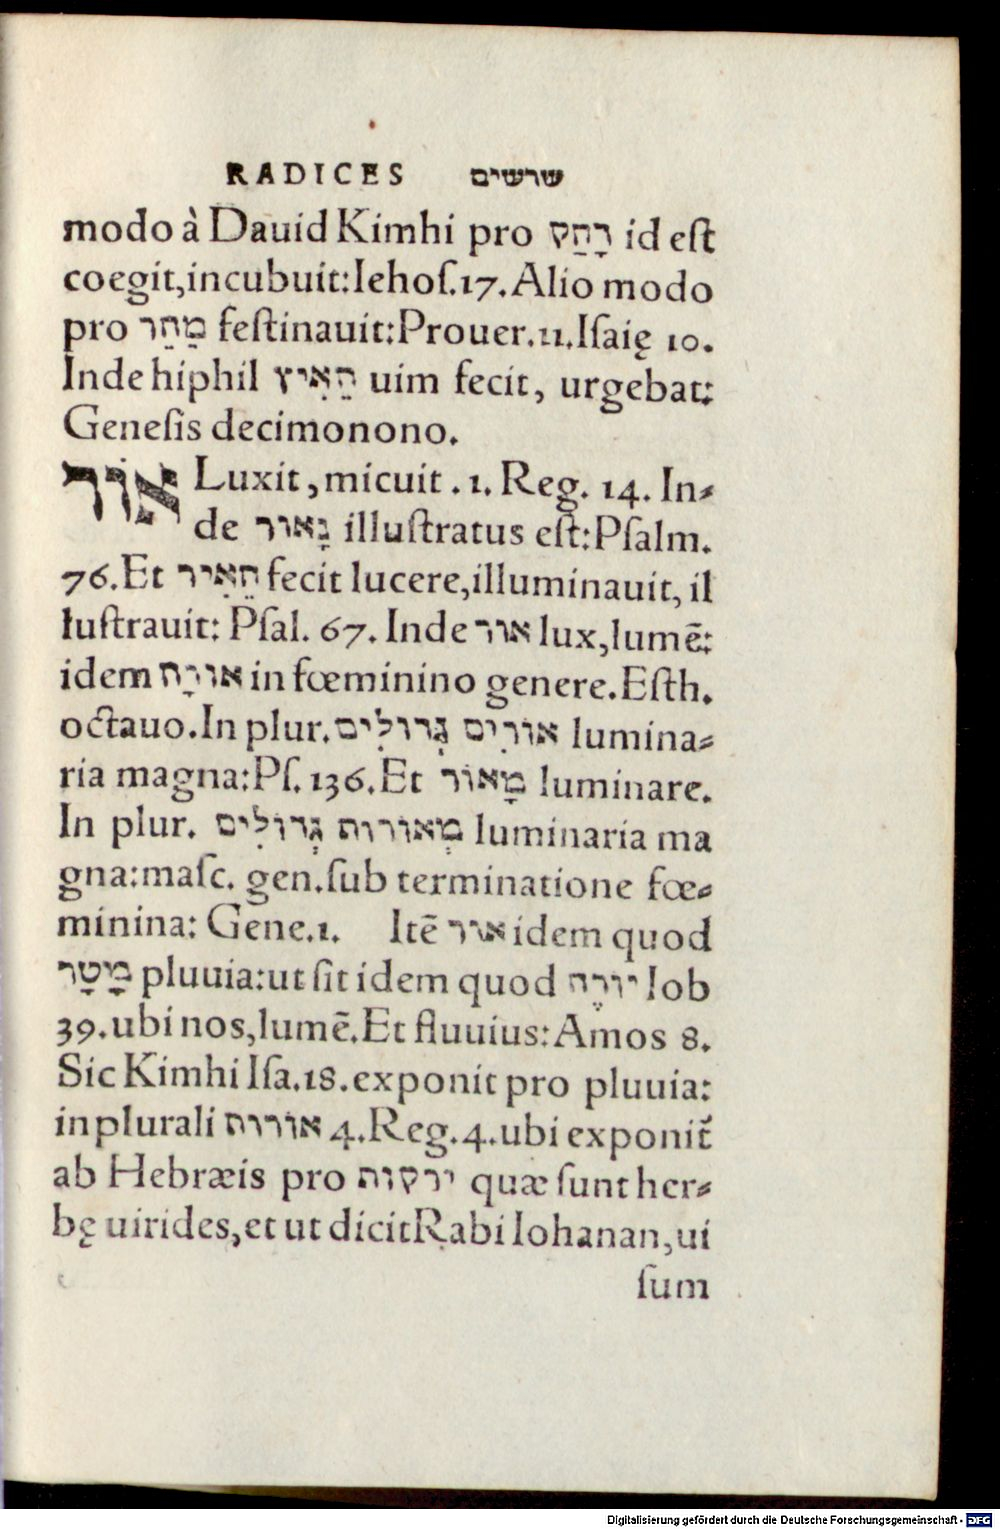 RADICES שרשים
modo à Dauid Kimhi pro דָּחַק id eſt
coegit,incubuit:Iehoſ.17.Alio modo
pro מַהֵר feſtinauit:Prouer.11.Iſaię 10.
Inde hiphil הֵאִיץ uim fecit, urgebat:
Geneſis decimonono.
אוֹר Luxit,micuit.1.Reg. 14. In-
de נָאוֹר illuſtratus eſt:Pſalm.
76.Et הֵאִיר fecit lucere,illuminauit, il
luſtrauit: Pſal. 67. Inde אור lux,lumē:
idem אורָה in fœminino genere.Eſth.
octauo.In plur. אוֹרִים גְדוֹלִים lumina-
ria magna:Pſ.136.Et מָאוֹר luminare.
In plur. מְאוֹרוֹת גְּדוֹלִים luminaria ma
gna:maſc. gen.ſub terminatione fœ-
minina: Gene.1. Itē אור idem quod
מָטָר pluuia:ut ſit idem quod יורֶה Iob
39.ubi nos,lumē.Et fluuius:Amos 8.
Sic Kimhi Iſa.18.exponit pro pluuia:
in plurali אוֹרוֹת 4.Reg.4.ubi exponit᷑
ab Hebræis pro ירקות quæ ſunt her-
bę uirides,et ut dicit Rabi Iohanan,ui
ſum
Digitalisierung gefördert durch die Deutsche Forschungsgemeinschaft - DFG